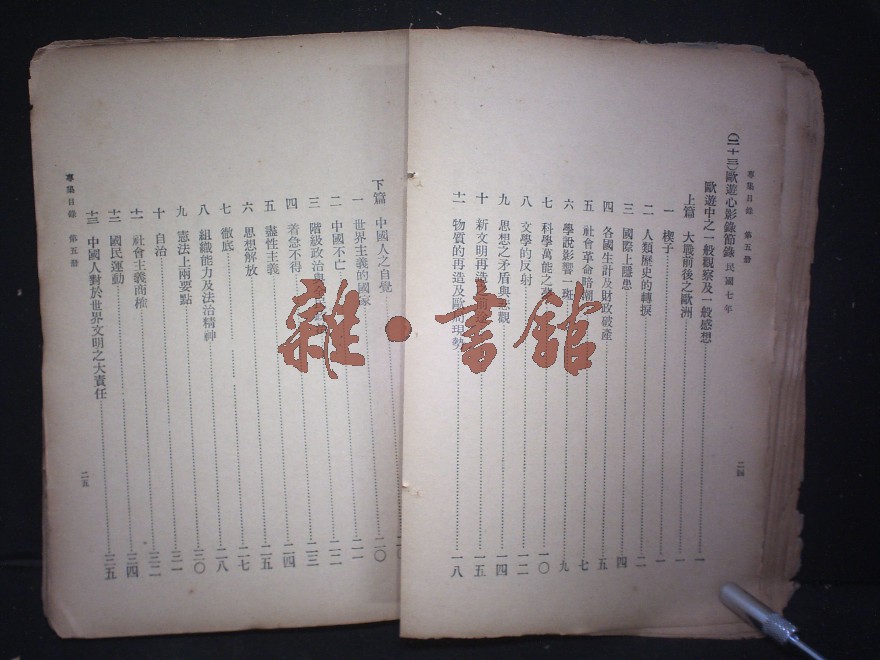 專集目錄 第五册
二四
(二十三)歐遊心影錄節錄 民國七年
歐遊中之一般觀察及一般感想 一
上篇 大戰前後之歐洲 一
一 楔子 一
二 人類歷史的轉捩 二
三 國際上隱患 四
四 各國生計及財政破產 五
五 社會革命暗潮 七
六 學說影響一斑 九
七 科學萬能之 一〇
八 文學的反射 一二
九 思想之矛盾與悲觀 一四
十 新文明再造 一五
十一 物質的再造及歐 現勢 一八
下篇 中國人之自覺 二〇
一 世界主義的國家 二一
二 中國不亡 二二
三 階級政治與 二三
四 着急不得 二四
五 盡性主義 二五
六 思想解放 二七
七 徹底 二八
八 組織能力及法治精神 三〇
九 憲法上兩要點 三一
十 自治 三二
十一 社會主義商榷
十二 國民運動 三四
十三 中國人對於世界文明之大責任 三五
專集目錄 第五册
二五
雜·書舘